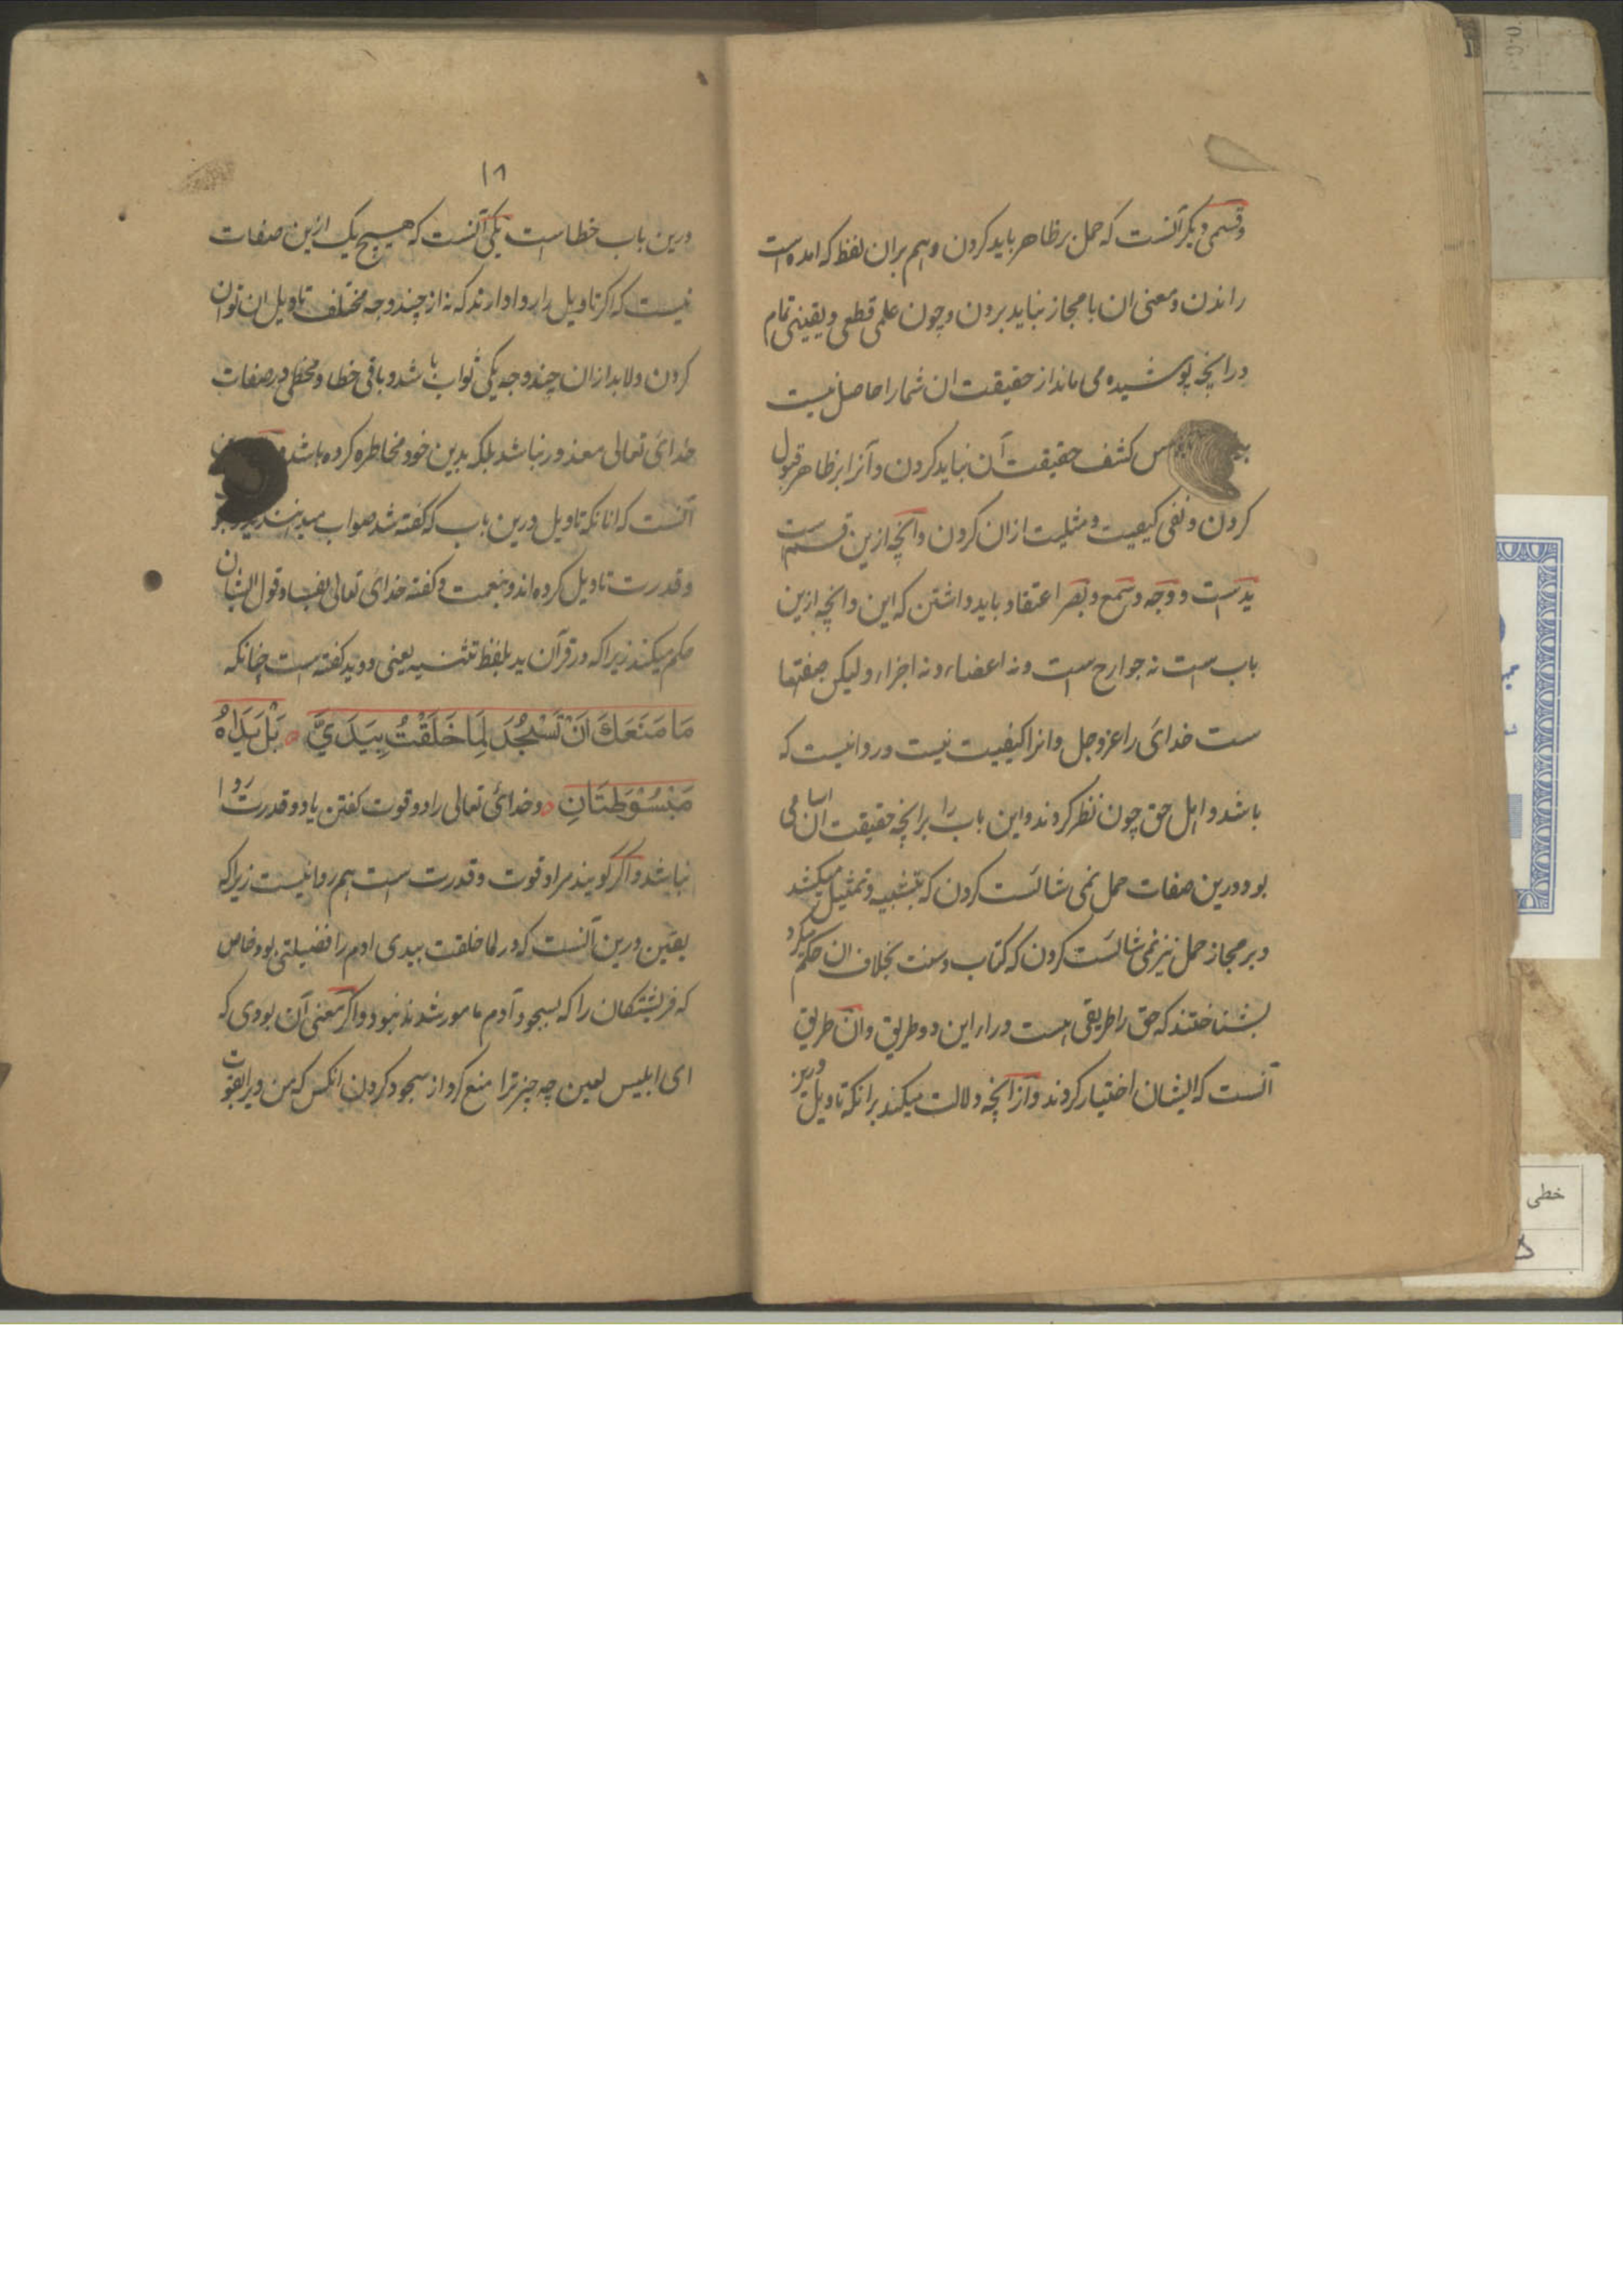 وقسمی دیگر آنست که حمل بر ظاهر باید کردن وهم بران لفظ که امده است
راندن ومعنی ان با مجاز نباید بردن وچون علمی قطعی ویقینی تمام
درانچه پوشیده می ماند از حقیقت ان شما را حاصل نیست
کشف حقیقت آن نباید کردن وآنرا بر ظاهر قبول
کردن ونفی کیفیت ومثلیت ازان کردن وانچه ازین قسم است
ید ست ووجه وسمع وبصر اعتقاد باید داشتن که این وانچه ازین
باب است نه جوارح است ونه اعضاء ونه اجزاء ولیکن صفتها
ست خدائ را عزوجل وانرا کیفیت نیست وروا نیست که
باشد واهل حق چون نظر کردند واین باب را برانچه حقیقت ان اسامی
بود درین صفات حمل نمی شائست کردن که بتشبیه وتمثیل میکشد
وبر مجاز حمل نیز نمی شائست کردن که کتاب وسنت بخلاف ان حکم میکرد
بشناختند که حق را طریقی است وراء این دو طریق وان طریق
آنست که ایشان اختیار کردند واز انچه دلالت میکند برانکه تاویل درین
۱۸
درین باب خطا است یکی آنست که هیچ یک ازین صفات
نیست که اکر تاویل را روا دارند که نه از چند وجه مختلف تاویل ان توان
کردن ولابد ازان چند وجه یکی ثواب باشد وباقی خطا ومخطی در صفات
خدائ تعالی معذور نباشد بلکه بدین خود مخاطره کرده باشد
آنست که انانکه تاویل درین باب که کفته شد صواب میدانند
وقدرت تاویل کرده اند وبنعمت وکفته خدائ تعالی بفساد قول ایشان
حکم میکند زیرا که در قرآن ید بلفظ تثنیه یعنی دو ید کفته است چنانکه
مَا مَنَعَكَ اَنْ تَسْجُدَ لِمَا خَلَقْتُ بِيَدَيَّ بَلْ يَدَاهُ
مَبْسُوْطَتَانِ وخدائ تعالی را دو قوت کفتن یا دو قدرت روا
نباشد واکر کویند مراد قوت وقدرت است هم روا نیست زیرا که
یقین درین آنست که در لما خلقت بیدی ادم را فضیلتی بود خاص
که فریشتکان را که بسجود آدم مامور شدند نبود واکر معنی آن بودی که
ای ابلیس لعین چه چیز ترا منع کرد از سجود کردن انکس که من ویرا بقوت
خطی